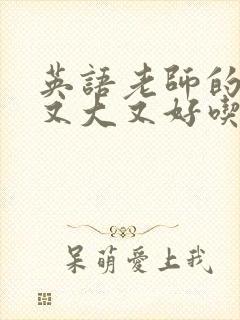 英語老師的
又大又好喫
呆萌愛上我